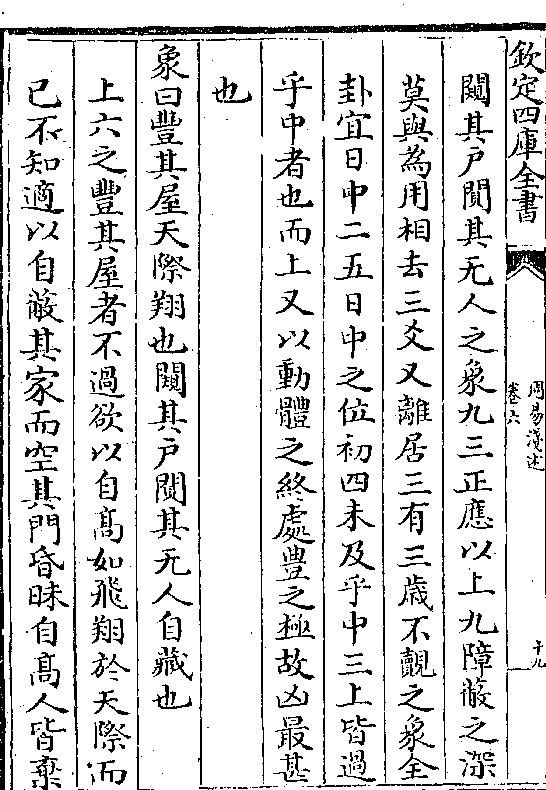 欽定四庫全書
周易淺述
卷六
十九
闚其戶闃其无人之象九三正應以上九障蔽之深
莫與為用相去三爻又離居三有三歲不覿之象全
卦宜日中二五日中之位初四未及乎中三上皆過
乎中者也而上又以動體之終處豊之極故凶最甚
也
象曰豐其屋天際翔也闚其戶闃其无人自藏也
上六之豐其屋者不過欲以自髙如飛翔於天際而
已不知適以自蔽其家而空其門昏昧自髙人皆棄